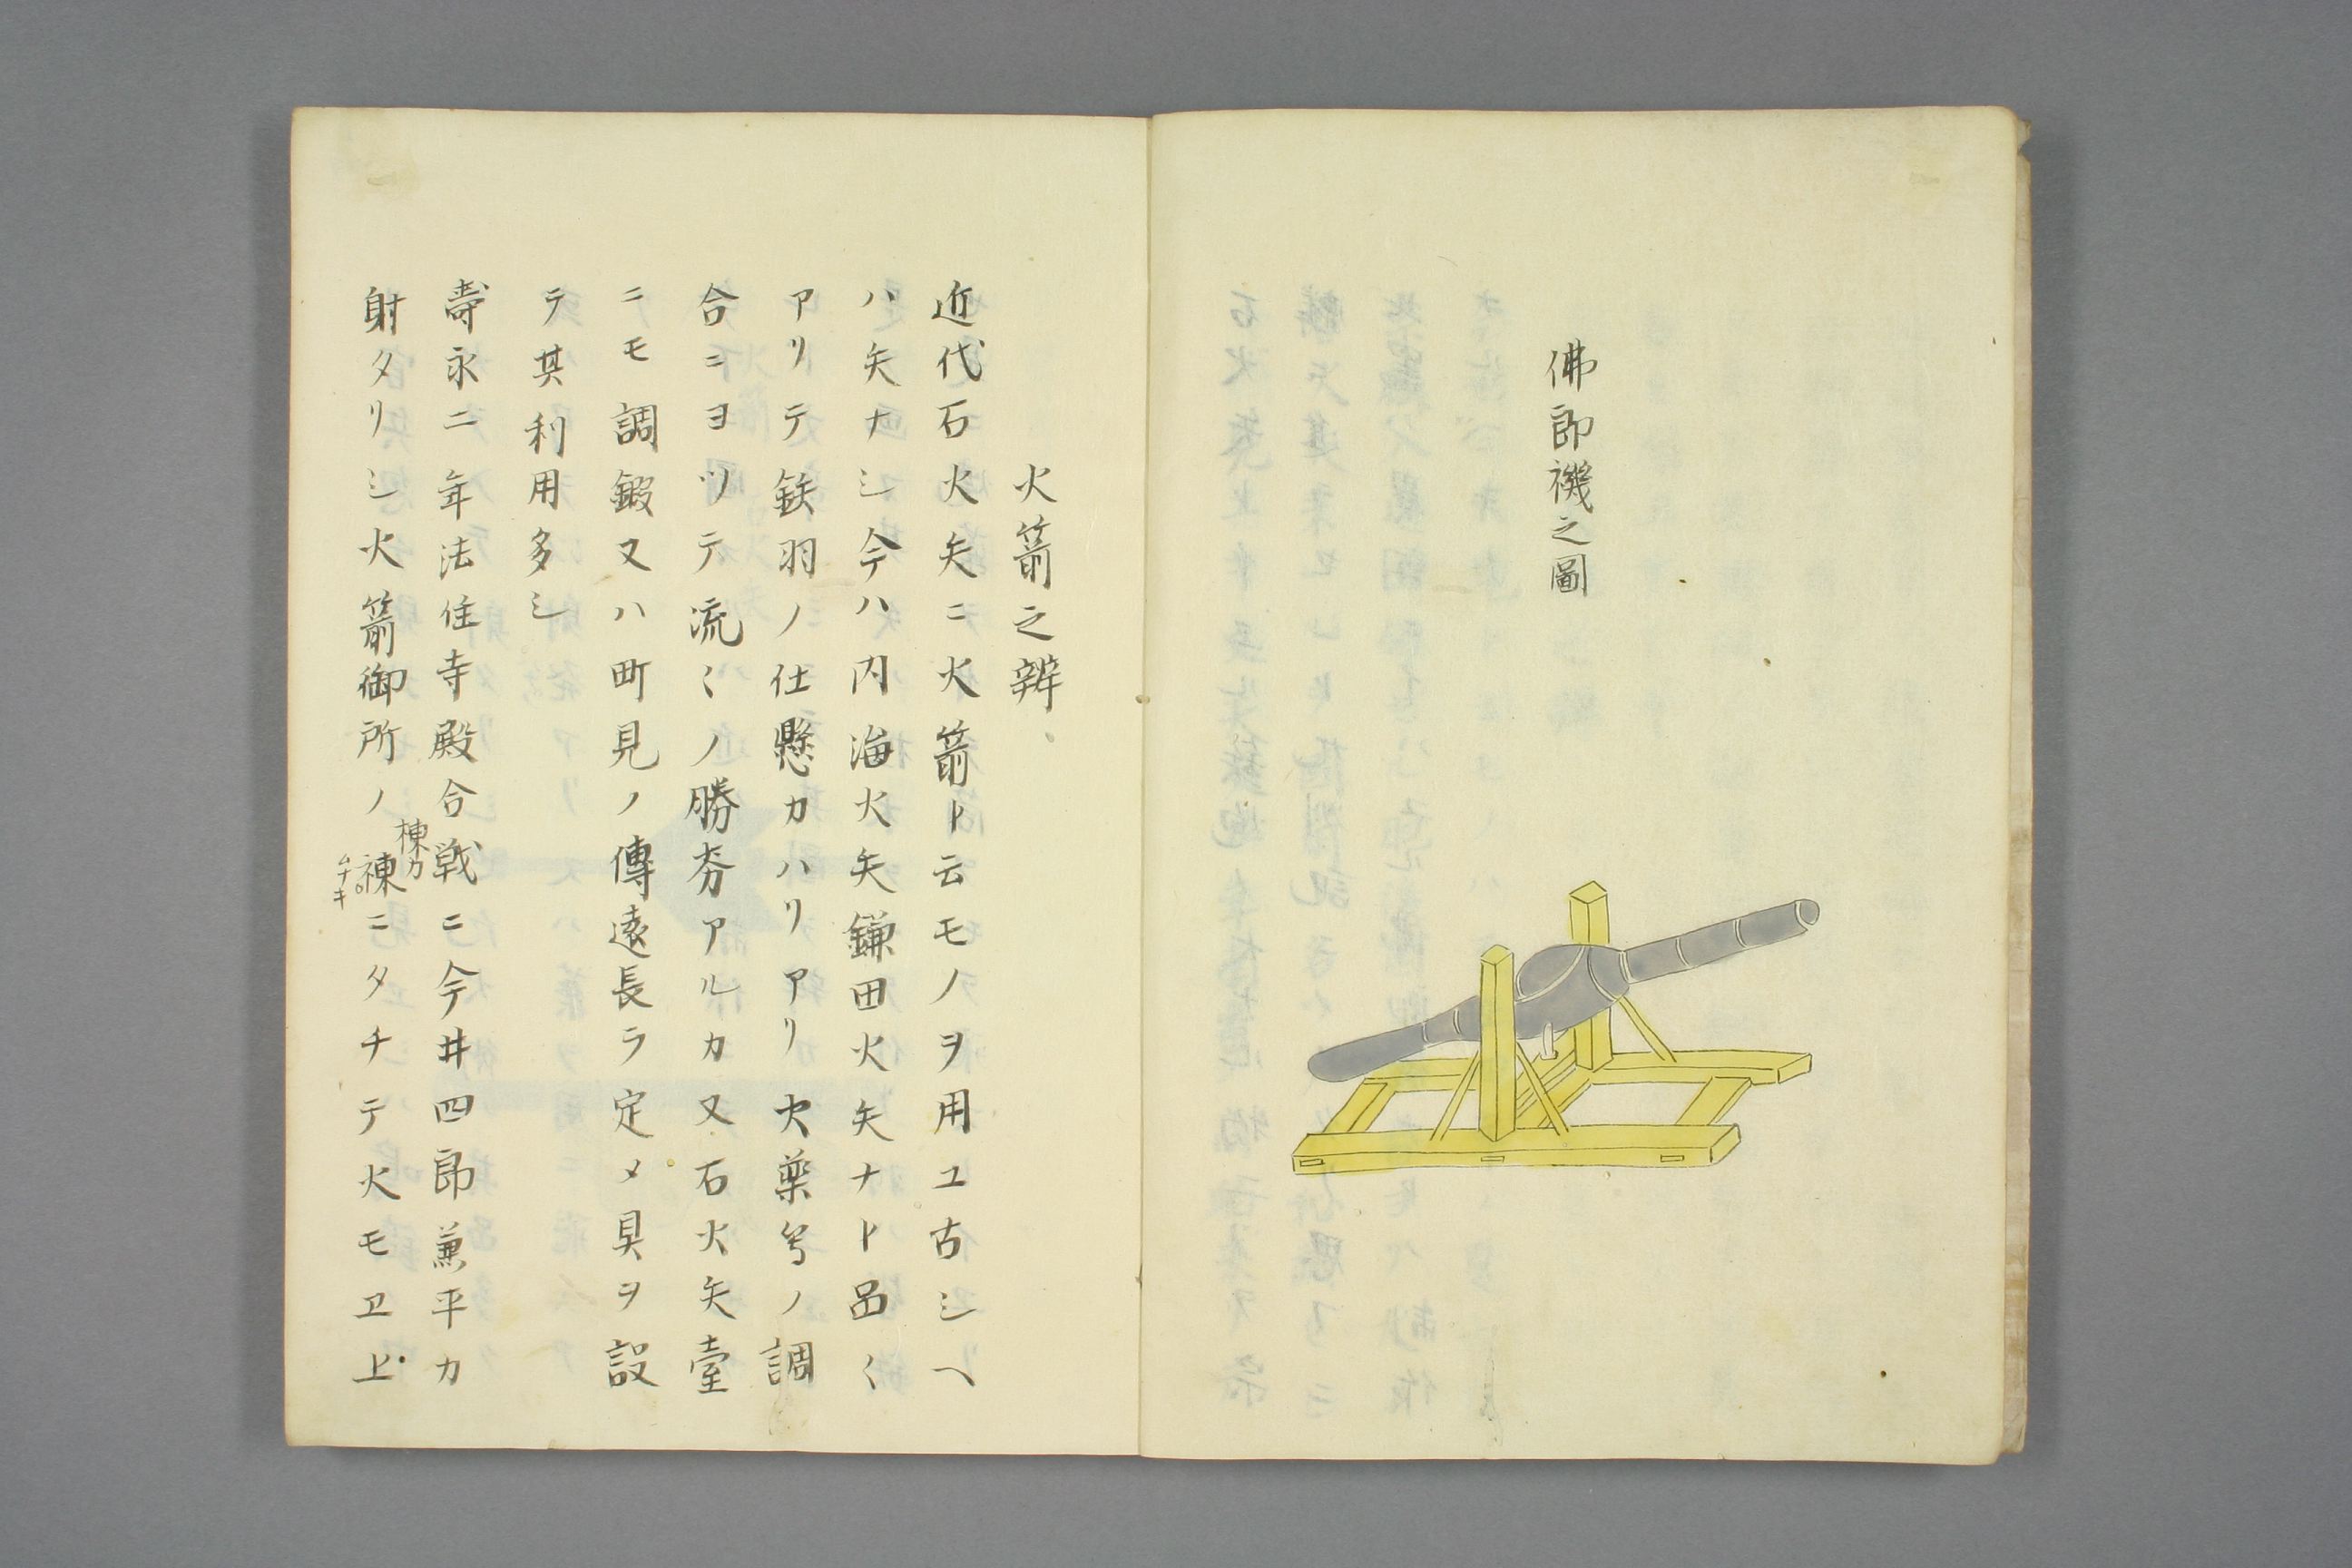 佛郎機之圖
火箭之辨
近代石火矢ニ火箭ト云モノヲ用ユ古シヘ
ハ矢ナシ今ハ内海火矢鎌田火矢ナト品〱
アリテ鉄羽ノ仕懸カハリアリ火薬等ノ調
合ニヨツテ流〱ノ勝劣アルカ又石火矢臺
ニモ調鍛又ハ町見ノ傳遠長ラ定メ具ヲ設
テ其利用多シ
壽永二年法住寺殿合戦ニ今井四郎兼平カ
射タリシ火箭御所ノ棟ニタチテ火モヱ上
棟カ
ムナキ